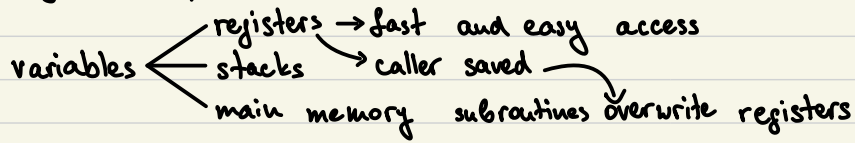 registers → fast and easy access
variables stacks caller saved
main memory subroutines overwrite registers